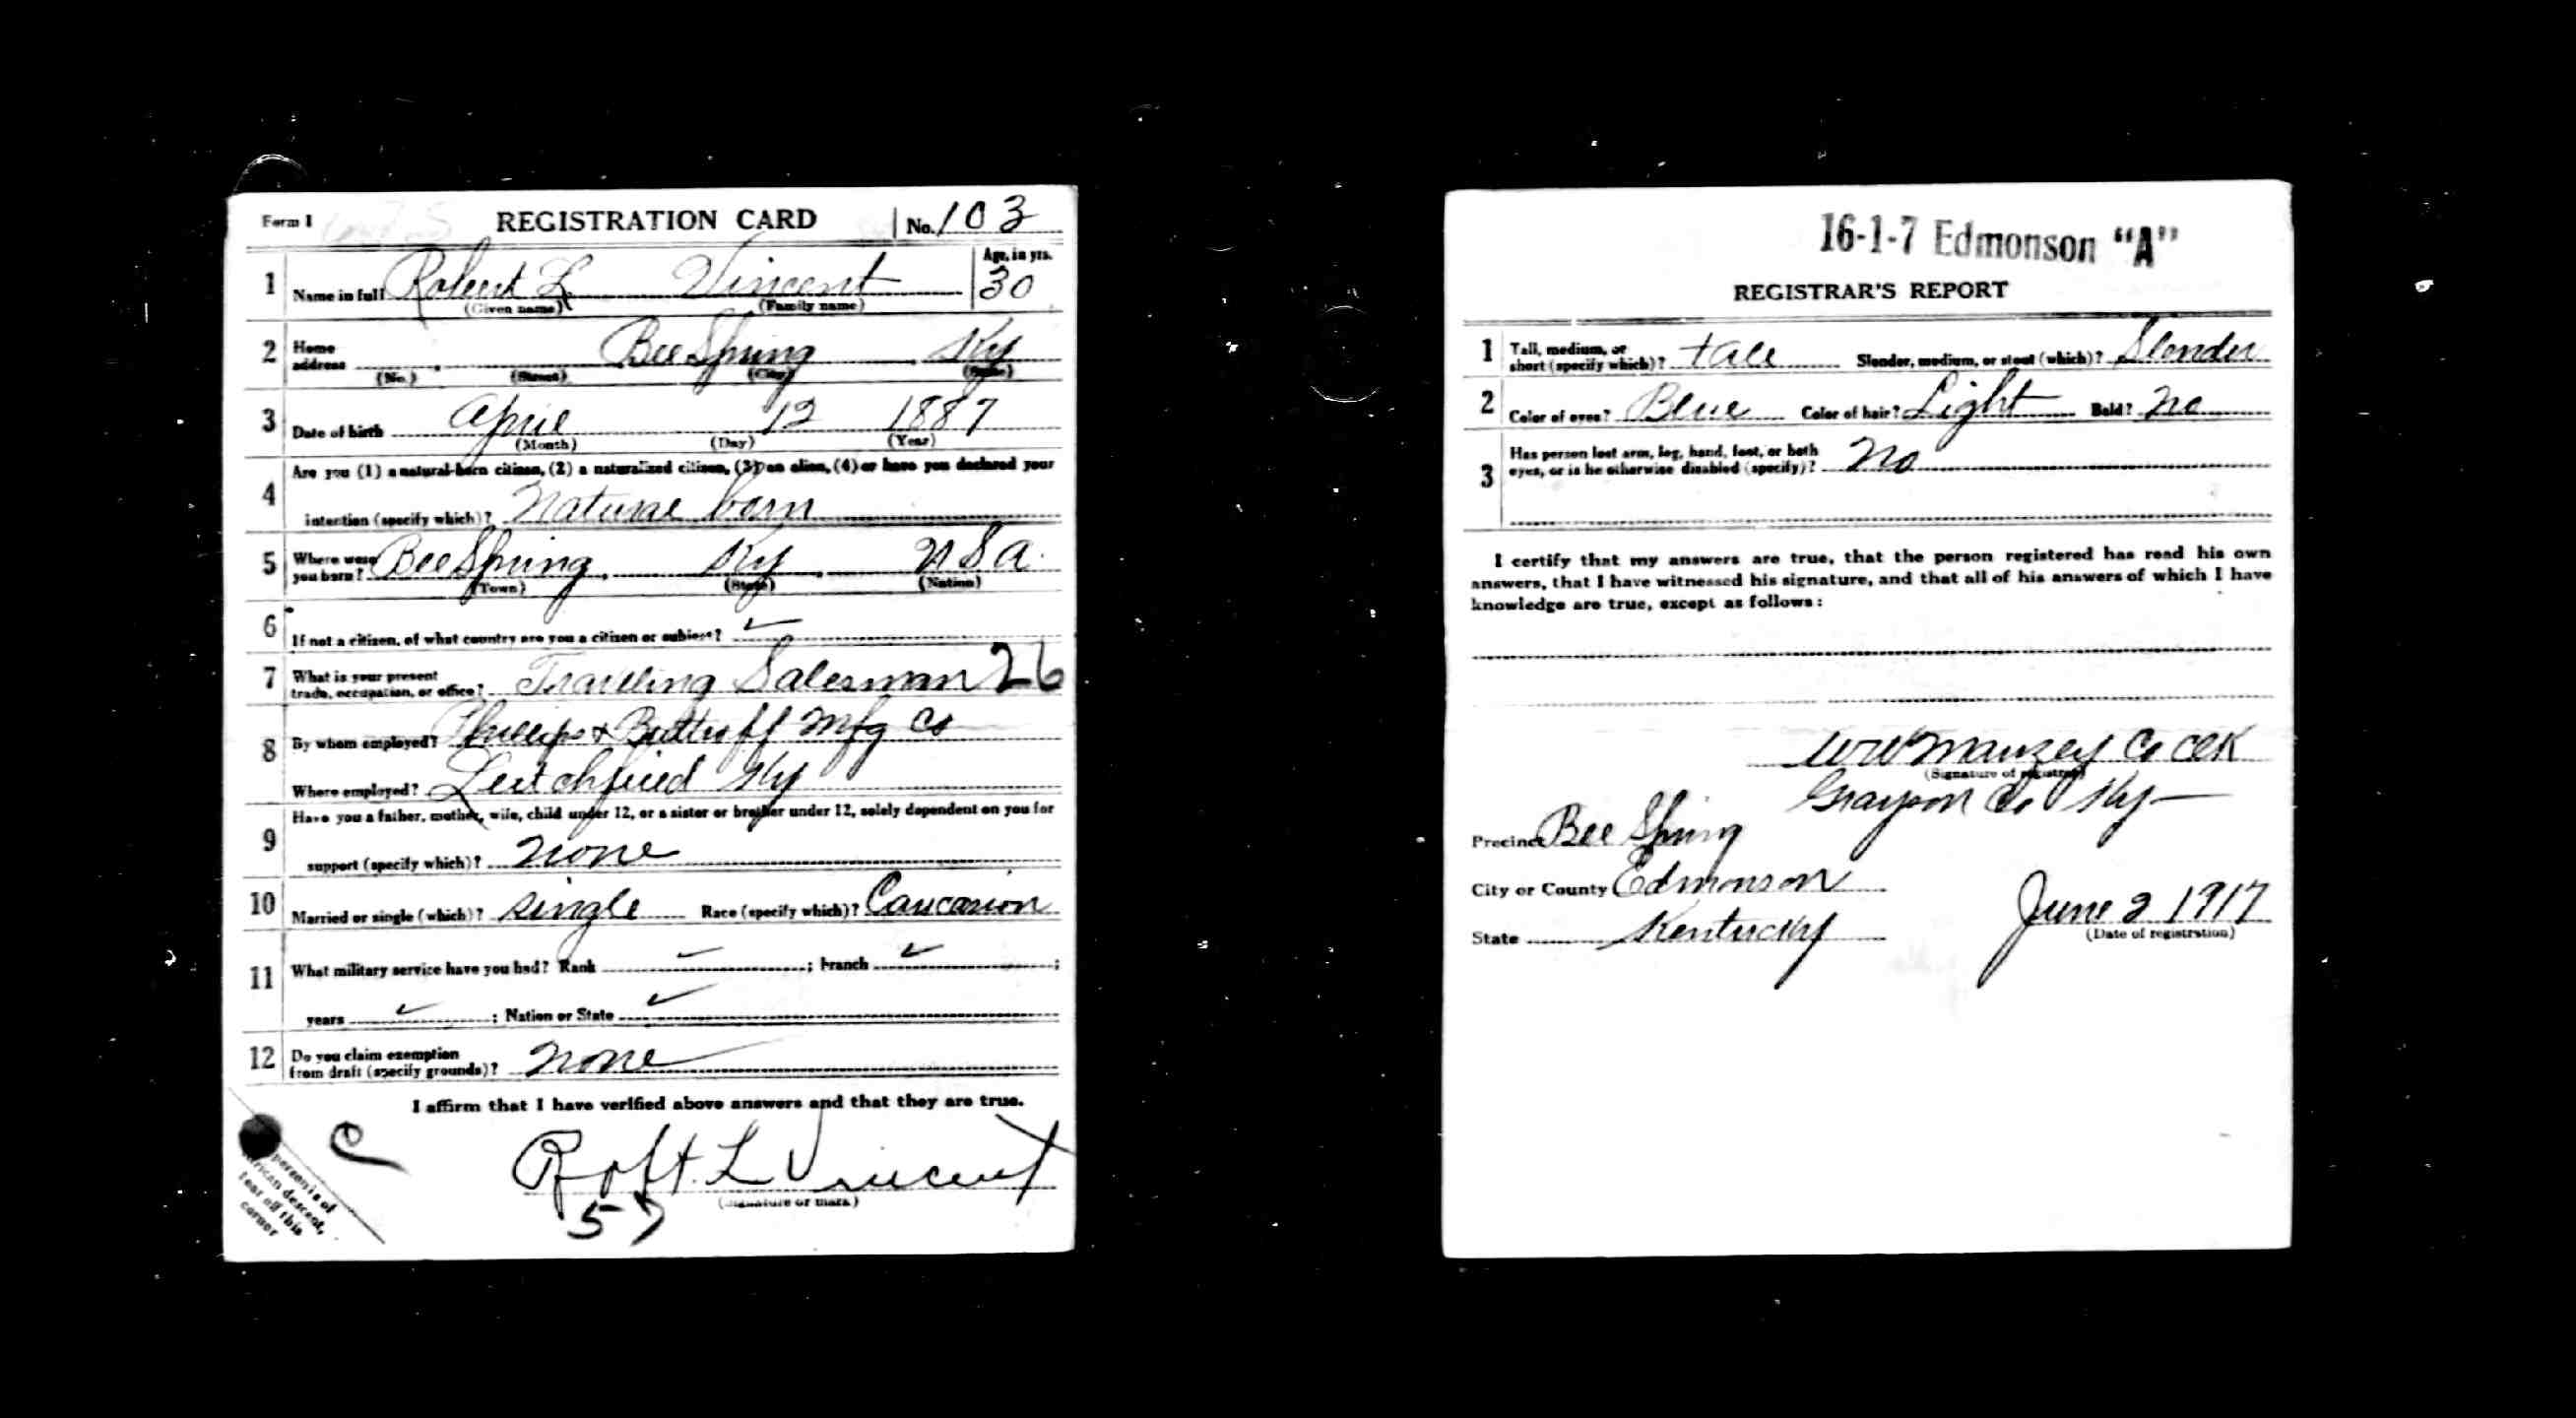 Form 1 REGISTRATION CARD No. 103
1 Name in full Robert L Vincent Age, in yrs. 30
(Given name) (Family name)
2 Home address Bee Spring Ky
(No.) (Street) (City) (State)
3 Date of birth April 12 1887
(Month) (Day) (Year)
4 Are you (1) a natural-born citizen, (2) a naturalized citizen, (3) an alien, (4) or have you declared your
intention (specify which)? Natural born
5 Where were you born? Bee Spring Ky U S A.
(Town) (State) (Nation)
6 If not a citizen, of what country are you a citizen or subject? ✓
7 What is your present
trade, occupation, or office? Traveling Salesman 26
8 By whom employed? Phillips & Buttroff Mfg Co
Where employed? Leitchfield Ky
9 Have you a father, mother, wife, child under 12, or a sister or brother under 12, solely dependent on you for
support (specify which)? None
10 Married or single (which)? Single Race (specify which)? Caucasion
11 What military service have you had? Rank ✓ ; branch ✓ ;
years ✓ ; Nation or State ✓
12 Do you claim exemption
from draft (specify grounds)? None
I affirm that I have verified above answers and that they are true.
Robt. L Vincent
(Signature or mark)
57
person is of
African descent,
tear off this
corner
16-1-7 Edmonson "A"
REGISTRAR'S REPORT
1 Tall, medium, or
short (specify which)? tall Slender, medium, or stout (which)? Slender
2 Color of eyes? Blue Color of hair? Light Bald? No
3 Has person lost arm, leg, hand, foot, or both
eyes, or is he otherwise disabled (specify)? No
I certify that my answers are true, that the person registered has read his own
answers, that I have witnessed his signature, and that all of his answers of which I have
knowledge are true, except as follows:
W W Mauzey Co Clk
(Signature of registrar)
Grayson Co Ky
Precinct Bee Spring
City or County Edmonson
State Kentucky
June 2 1917
(Date of registration)